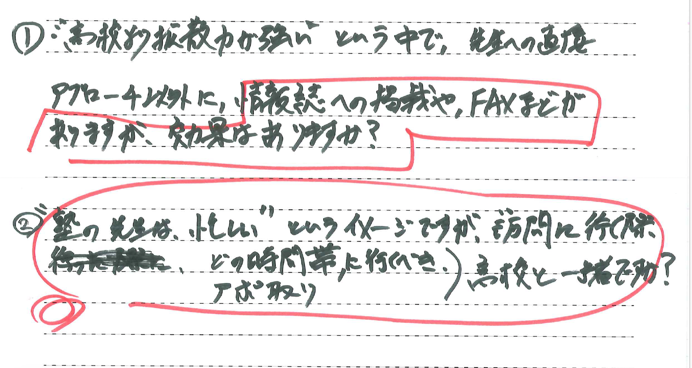 ① "高校より拡散力が強い" という中で、先生への直接
アプローチメイトに、情報誌への掲載や、FAXなどが
ありますが、効果はありますか?
② "塾の先生は、忙しい" というイメージですが、訪問に行く際、
どの時間帯に行くべき、 高校と一緒でOK?
アポ取り